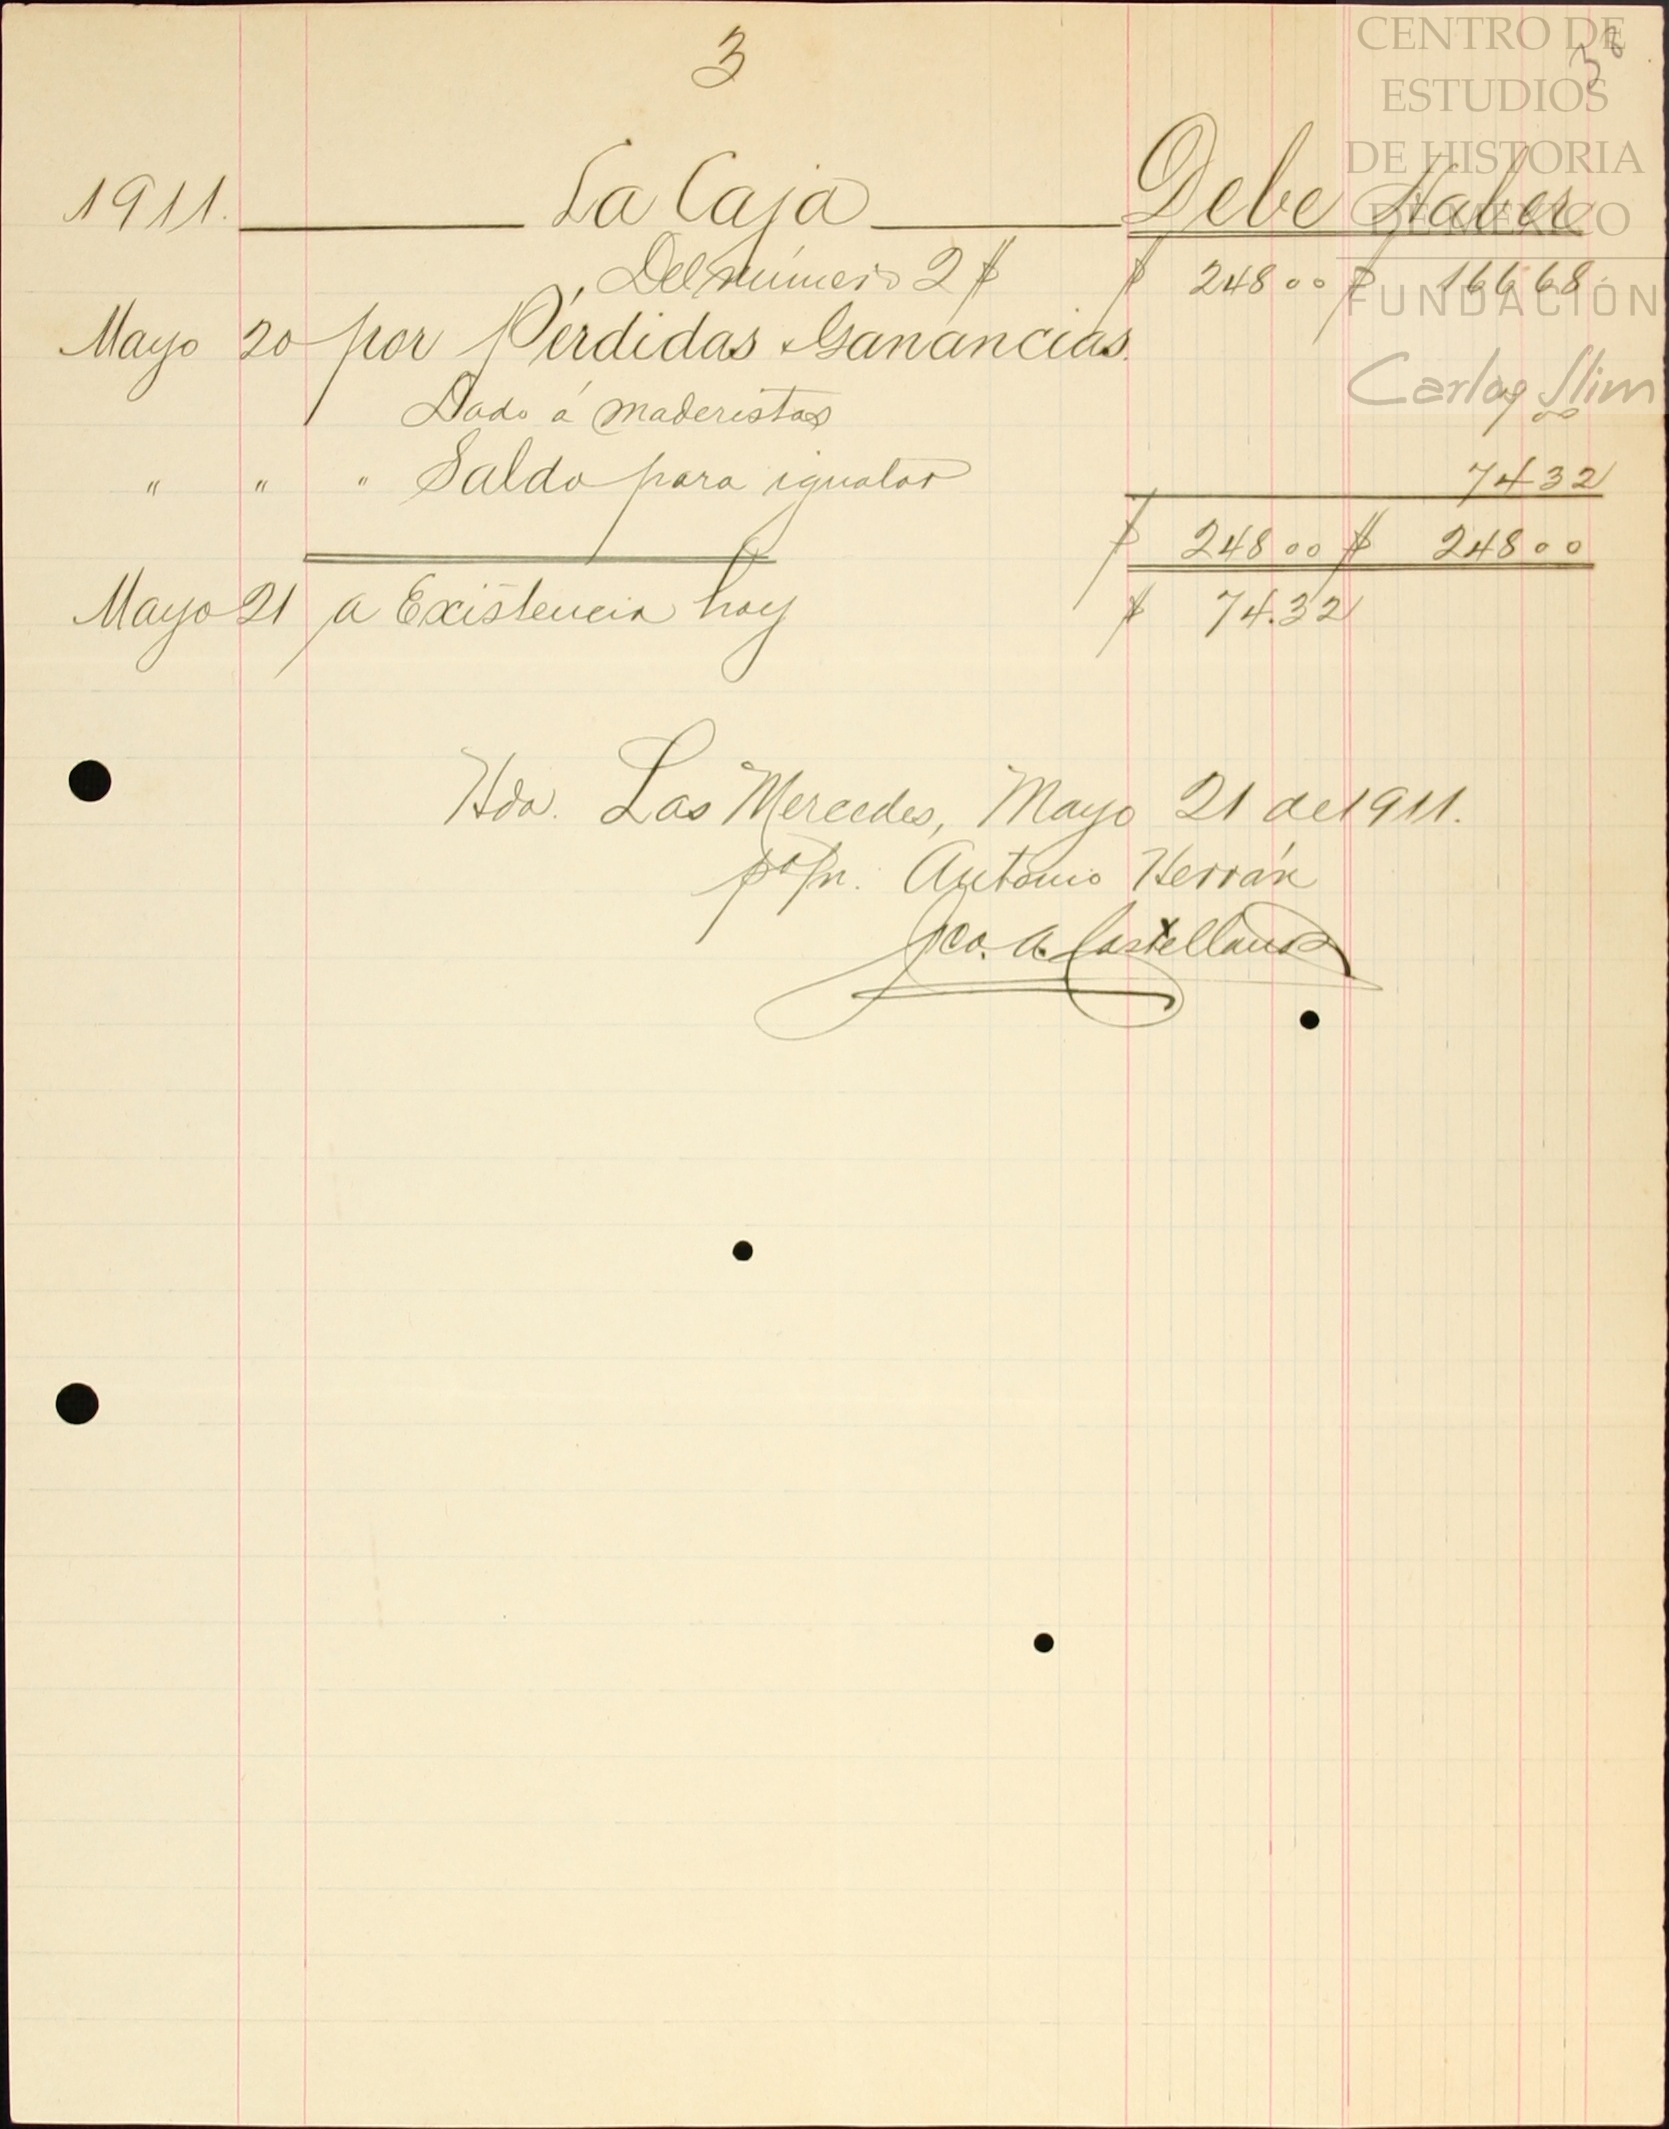 3
38
CENTRO DE
ESTUDIOS
DE HISTORIA
DE MÉXICO
FUNDACIÓN
Carlos Slim
1911. La Caja Debe Haber
Del número 2 $ $ 248 00 $ 166 68
Mayo 20 por Pérdidas & Ganancias
Dado á maderistas 7 00
" " " Saldo para igualar 74 32
$ 248 00 $ 248 00
Mayo 21 a Existencia hoy $ 74.32
Hda. Las Mercedes, Mayo 21 de 1911.
Antonio Herrán
Fco. A. Castellanos